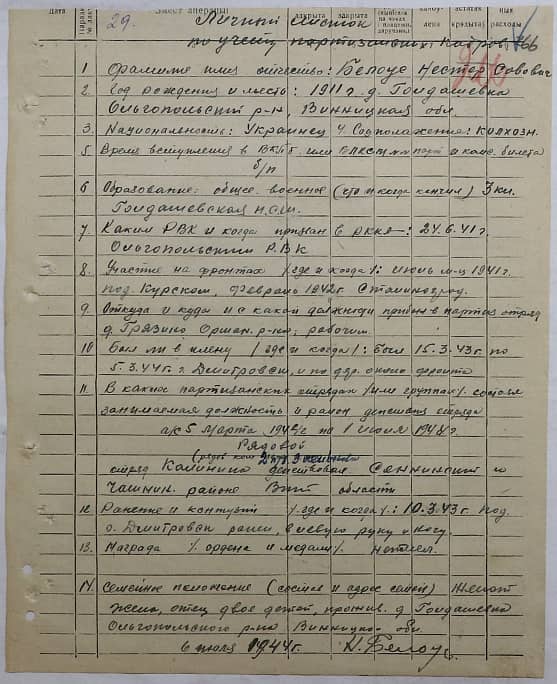 29. Личный листок
по учету партизанских кадров 766
1 Фамилия имя отчество: Белоус Нестер Совович
2. Год рождения и место: 1911 г. д. Гоидашевка
Ольгопольский р-н, Винницкая обл.
3. Национальность: Украинец 4. Соцположение: Колхозн.
5 Время вступления в ВКПб. или ВЛКСМ, № парт и канд. билета
б/п
6 Образование: общее, военное (что и когда кончил) 3 кл.
Гоидашевская н.с.ш.
7. Каким РВК и когда призван в РККА: 24.6.41 г.
Ольгопольский Р.В.К
8. Участие на фронтах /где и когда/: июнь м-ц 1941 г.
под Курском, февраль 1942 г. Сталинград.
9. Откуда и куда и с какой должности прибыл в партиз отряд
д. Грязино Оршан. р-на, рабочим.
10 Был ли в плену /где и когда/: был 15.3.43 г. по
5.3.44 г. г Дмитровск, и по дер. около фронта
11. В каких партизанских отрядах /или группах/ состоял
занимаемая должность и район действия отряда
а/с 5 Марта 1944 г по 1 июля 1944 г.
Рядовой
отряд Калинина действовал Сеннинский и
Чашник. районе Вит области
12 Ранение и контузия /где и когда/: 10.3.43 г. под
г. Дмитровск ранен, в левую руку и ногу.
13. Награда /ордена и медали/. не имел.
14. Семейное положение (состав и адрес семьи) Женат
жена, отец двое детей, прожив. д Гоидашевка
Ольгопольского р-на Винницкой обл.
6 июля 1944 г. Н. Белоус.